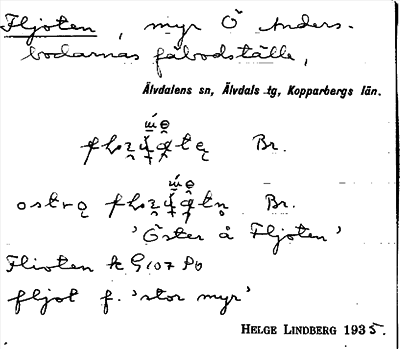 Fljoten, myr Ö Anders-
bodarnas fäbodställe,
Älvdalens sn, Älvdals tg, Kopparbergs län.
Br.
Br.
'Öster å Fljoten'
Flioten k G107 Pb
fljot f. 'stor myr'
HELGE LINDBERG 1935.